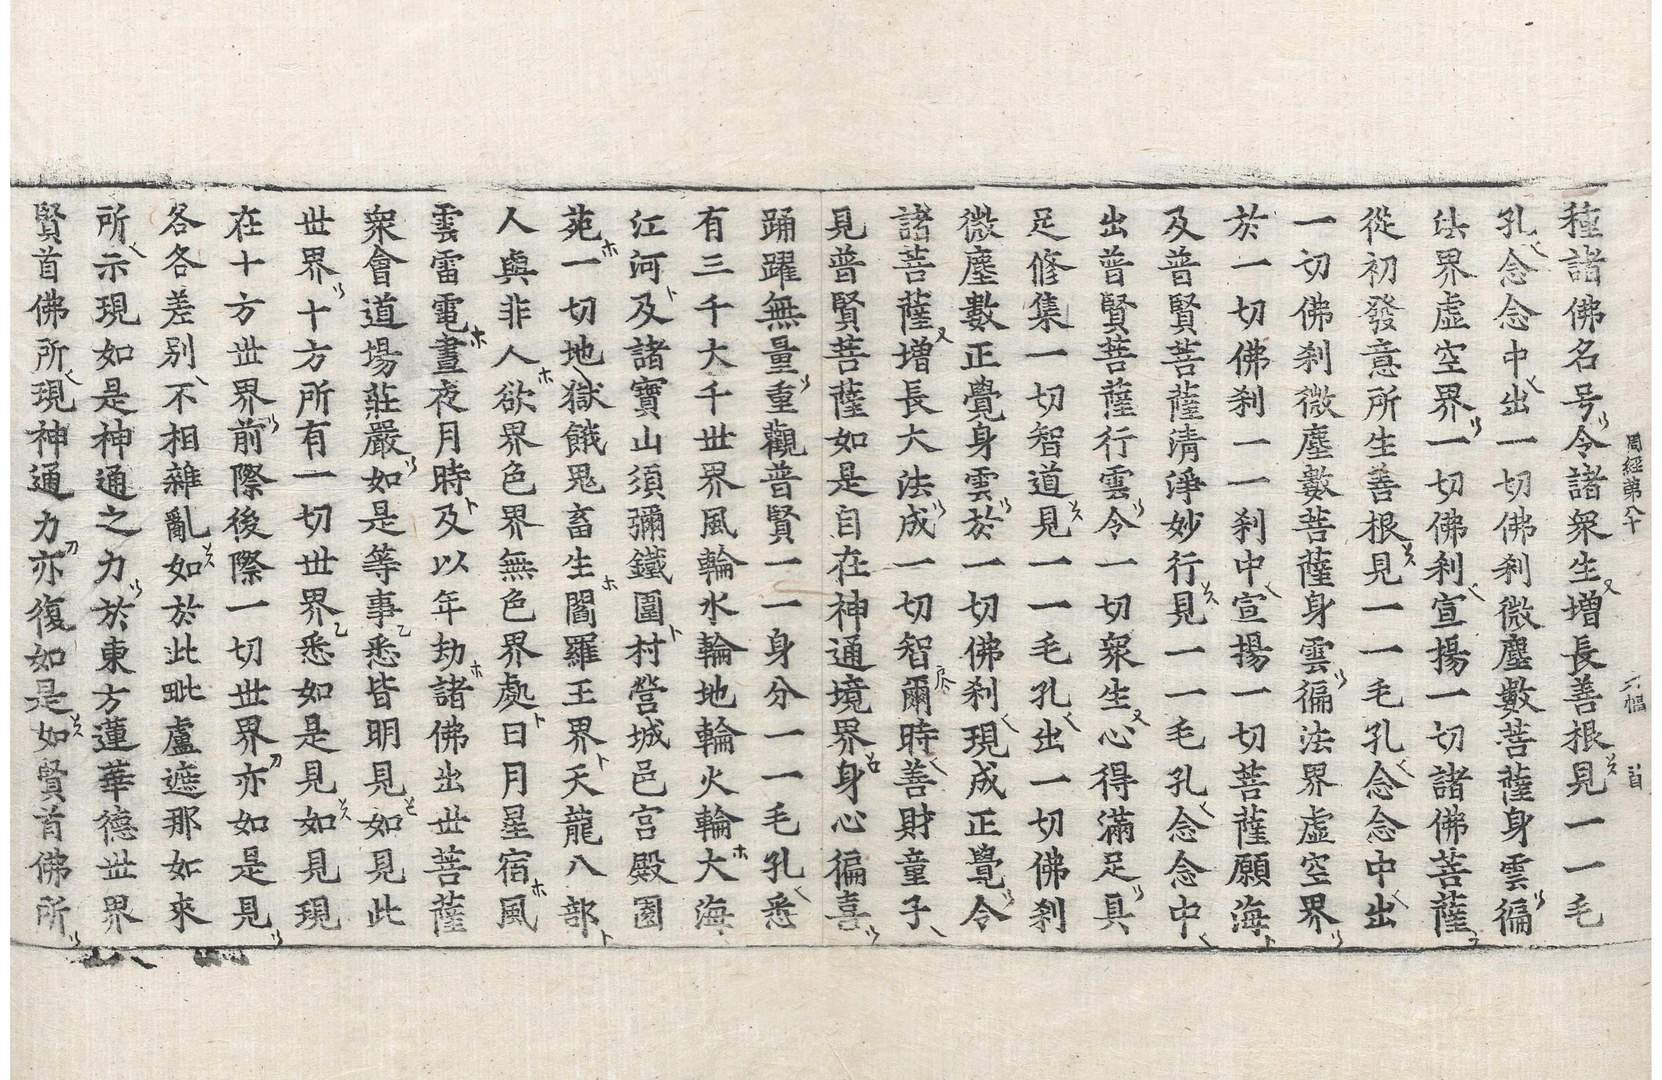 種諸佛名号令諸衆生增長善根見一一毛
孔念念中出一切佛刹微塵數菩薩身雲徧
法界虚空界一切佛刹宣揚一切諸佛菩薩
從初發意所生善根見一一毛孔念念中出
一切佛刹微塵數菩薩身雲徧法界虚空界
於一切佛刹一一刹中宣揚一切菩薩願海
及普賢菩薩清淨妙行見一一毛孔念念中
出普賢菩薩行雲令一切衆生心得滿足具
足修集一切智道見一一毛孔出一切佛刹
微塵數正覺身雲於一切佛刹現成正覺令
諸菩薩增長大法成一切智爾時善財童子
見普賢菩薩如是自在神通境界身心徧喜
踊躍無量重觀普賢一一身分一一毛孔悉
有三千大千世界風輪水輪地輪火輪大海
江河及諸寶山須彌鐵圍村營城邑宮殿園
苑一切地獄餓鬼畜生閻羅王界天龍八部
人與非人欲界色界無色界處日月星宿風
雲雷電晝夜月時及以年劫諸佛出世菩薩
衆會道場莊嚴如是等事悉皆明見如見此
世界十方所有一切世界悉如是見如見現
在十方世界前際後際一切世界亦如是見
各各差別不相雜亂如於此毗盧遮那如來
所示現如是神通之力於東方蓮華德世界
賢首佛所現神通力亦復如是如賢首佛所
周經第八十
首